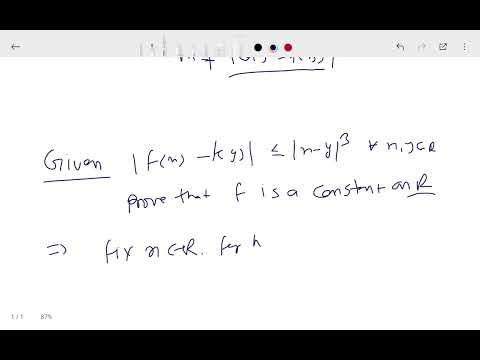 Given |f(x) - f(y)| ≤ |x-y|^3 ∀ x, y ∈ R
prove that f is a constant on R
⇒ fix x ∈ R. for h
1 / 1 87%